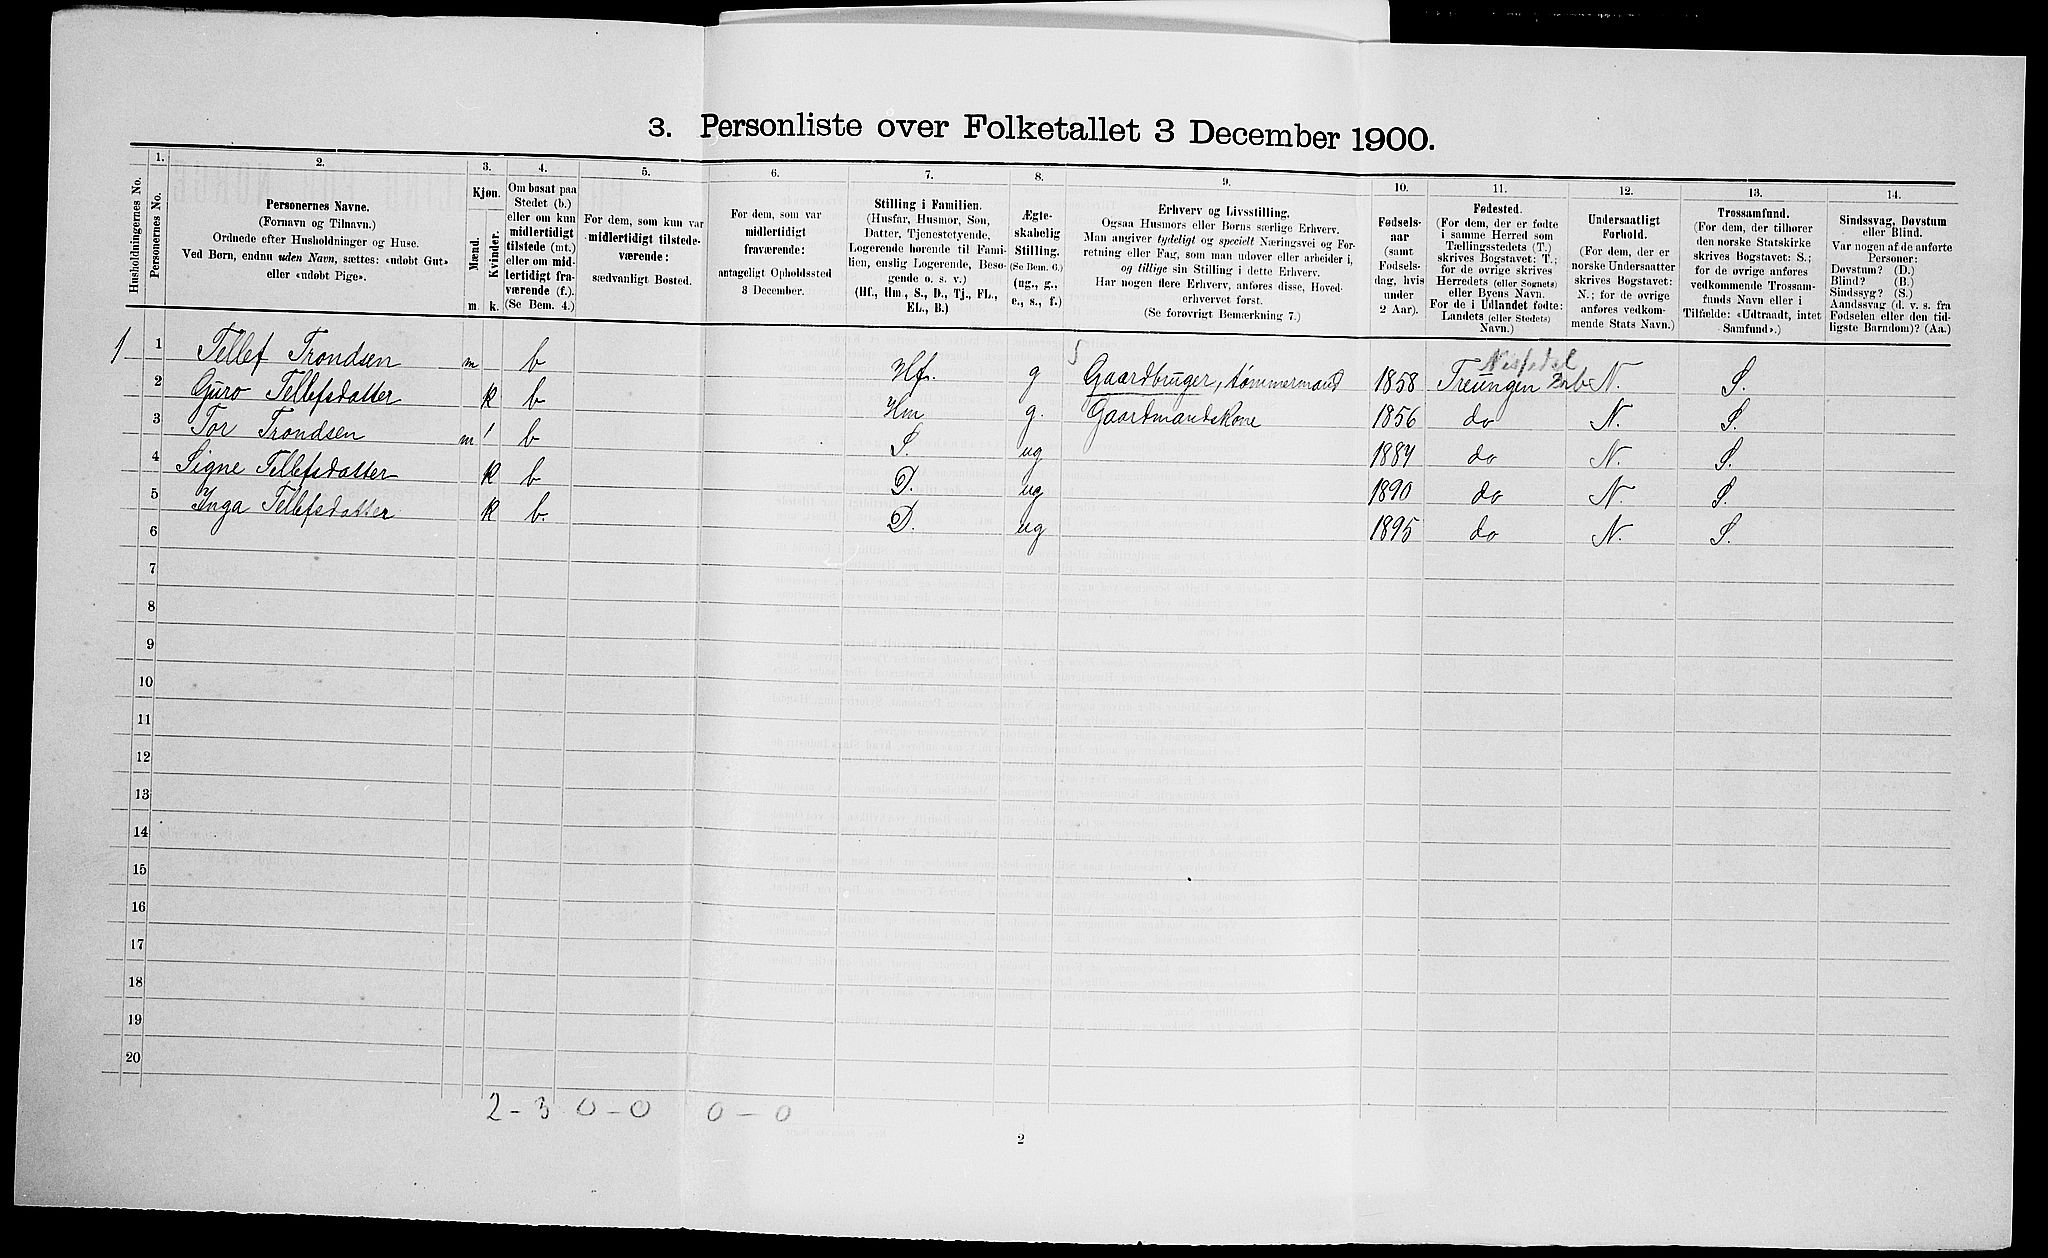 3. Personliste over Folketallet 3 December 1900.
Husholdningernes No.
1.
Personernes No.
2.
Personernes Navne.
(Fornavn og Tilnavn.)
Ordnede efter Husholdninger og Huse.
Ved Børn, endnu uden Navn, sættes: «udøbt Gut»
eller «udøbt Pige».
3.
Kjøn.
Mænd.
Kvinder.
m. k.
4.
Om bosat paa
Stedet (b.)
eller om kun
midlertidigt
tilstede (mt.)
eller om mid-
lertidigt fra-
værende (f.).
(Se Bem. 4.)
5.
For dem, som kun var
midlertidigt tilstede-
værende:
sædvanligt Bosted.
6.
For dem, som var
midlertidigt
fraværende:
antageligt Opholdssted
3 December.
7.
Stilling i Familien.
(Husfar, Husmor, Søn,
Datter, Tjenestetyende,
Logerende hørende til Fami-
lien, enslig Logerende, Besø-
gende o. s. v.)
(Hf., Hm., S., D., Tj., FL.,
EL., B.)
8.
Ægte-
skabelig
Stilling.
(Se Bem. 6.)
(ug., g.,
e., s., f.)
9.
Erhverv og Livsstilling.
Ogsaa Husmors eller Børns særlige Erhverv.
Man angiver tydeligt og specielt Næringsvei og For-
retning eller Fag, som man udøver eller arbeider i,
og tillige sin Stilling i dette Erhverv.
Har nogen flere Erhverv, anføres disse, Hoved-
erhvervet først.
(Se forøvrigt Bemærkning 7.)
10.
Fødsels-
aar
(samt
Fødsels-
dag, hvis
under
2 Aar).
11.
Fødested.
(For dem, der er fødte
i samme Herred som
Tællingsstedets (T.)
skrives Bogstavet: T.;
for de øvrige skrives
Herredets (eller Sognets)
eller Byens Navn.
For de i Udlandet fødte:
Landets (eller Stedets)
Navn.)
12.
Undersaatligt
Forhold.
(For dem, der er
norske Undersaatter
skrives Bogstavet:
N.; for de øvrige
anføres vedkom-
mende Stats Navn.)
13.
Trossamfund.
(For dem, der tilhører
den norske Statskirke
skrives Bogstavet: S.;
for de øvrige anføres
vedkommende Trossam-
funds Navn eller i
Tilfælde: «Udtraadt, intet
Samfund».)
14.
Sindssvag, Døvstum
eller Blind.
Var nogen af de anførte
Personer:
Døvstum? (D.)
Blind? (B.)
Sindssyg? (S.)
Aandssvag (d. v. s. fra
Fødselen eller den tid-
ligste Barndom)? (Aa.)
Nissedal
1 1 Tellef Trondsen m b Hf. g Gaardbruger, tømmermand 1858 Treungen N. S.
2 Guro Tellefsdatter k b Hm g. Gaardmandskone 1856 do N. S.
3 Tor Trondsen m b S. ug 1884 do N. S.
4 Signe Tellefsdatter k b D. ug 1890 do N. S.
5 Inga Tellefsdatter k b. D. ug 1895 do N. S.
6
7
8
9
10
11
12
13
14
15
16
17
18
19
20
2 - 3 0 - 0 0 - 0
2